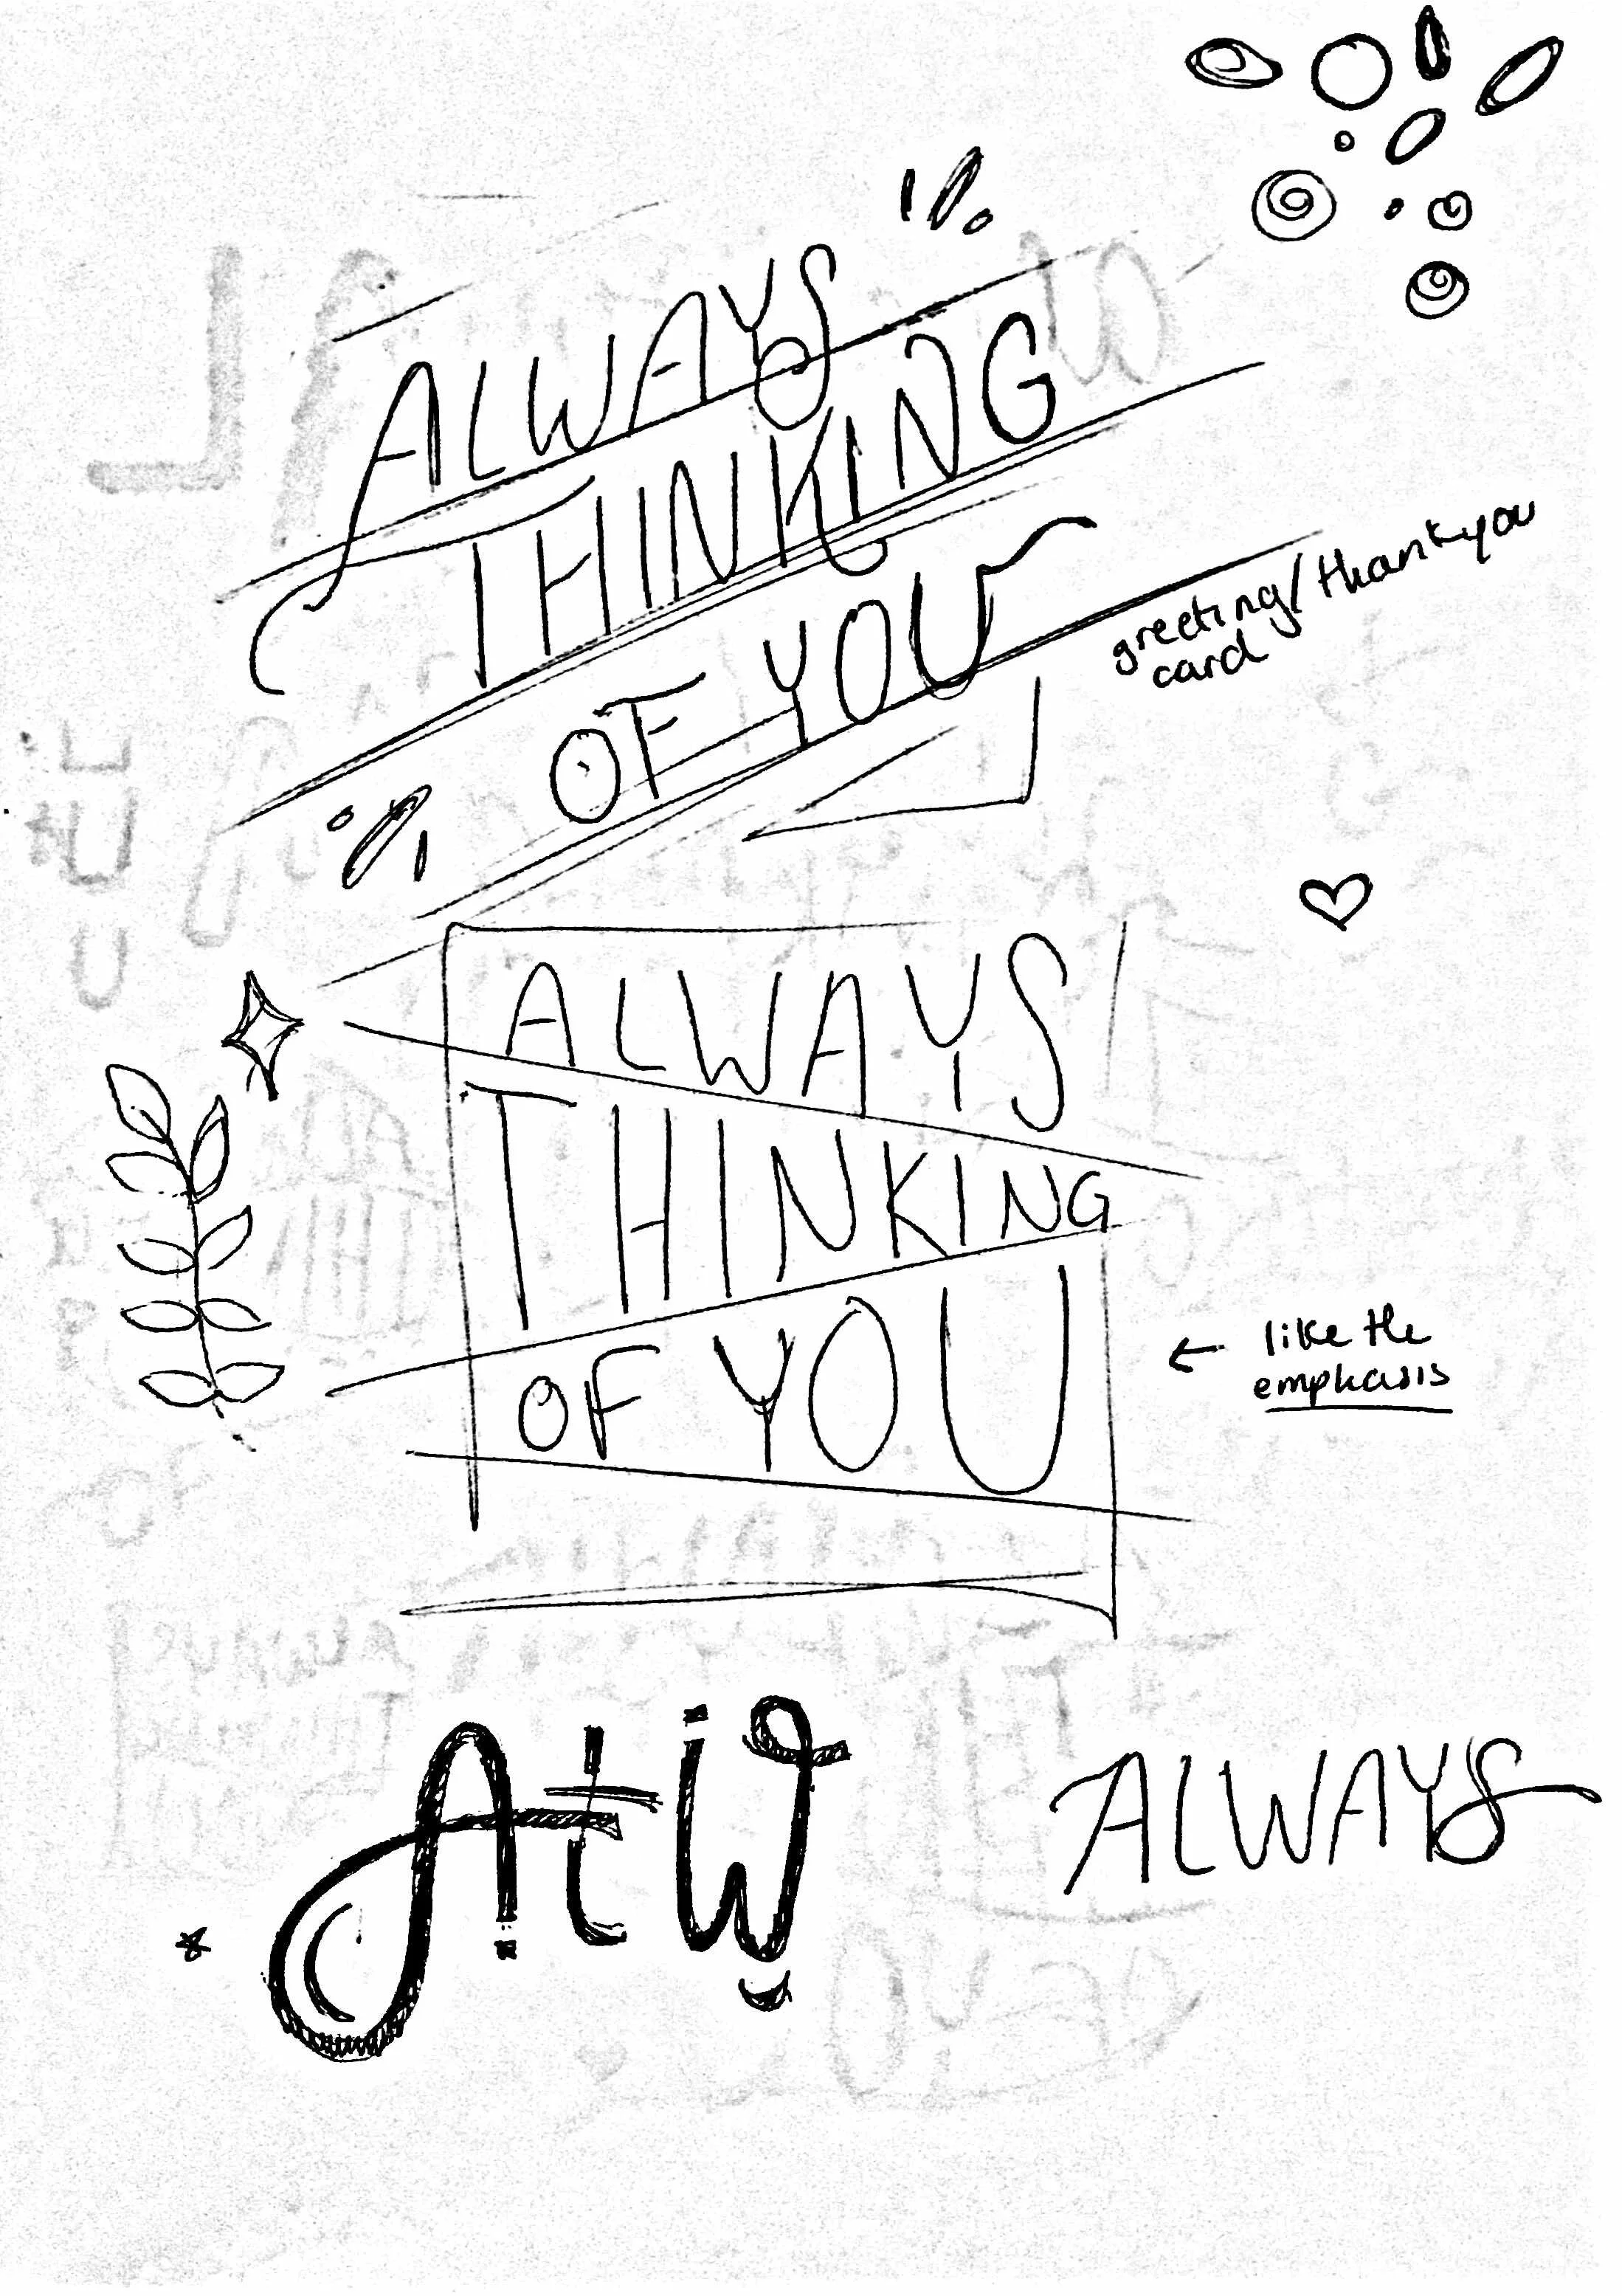 ALWAYS
THINKING
OF YOU
greeting/thankyou
card
ALWAYS
THINKING
OF YOU
← like the
emphasis
AtW
ALWAYS